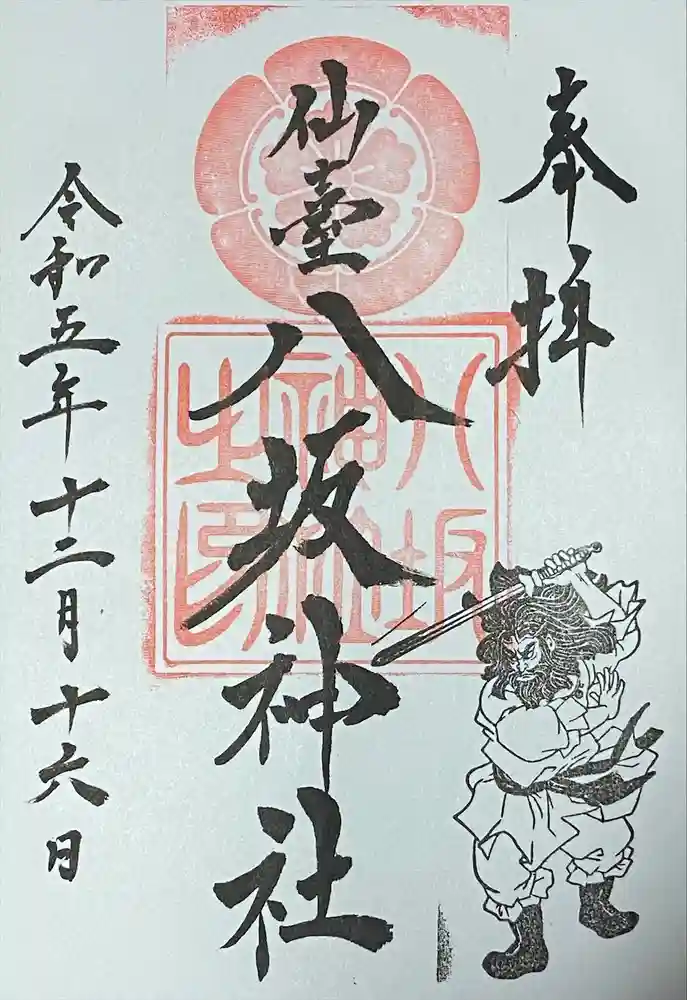 奉拝
仙臺
八坂神社
八坂神社之印
令和五年十二月十六日